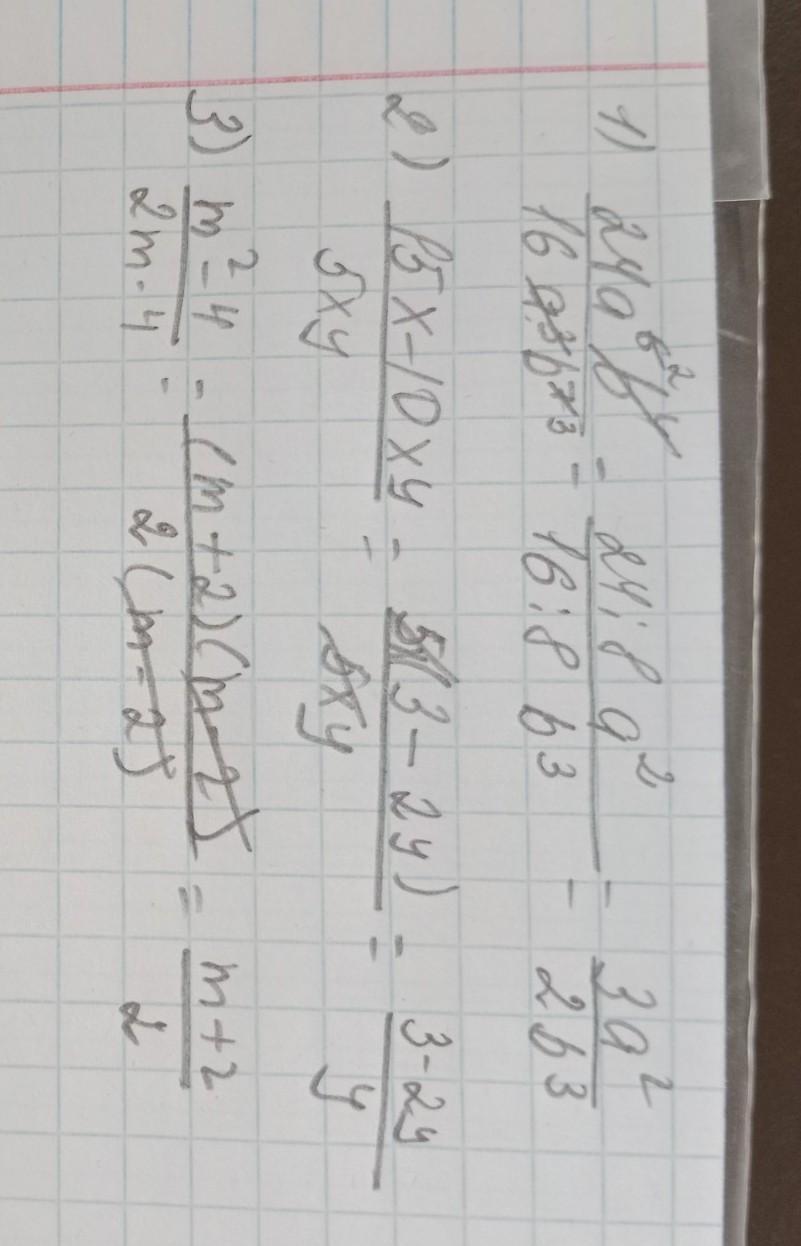 1) 24a⁶b⁴ / 16a³b⁷ = 24:8 a² / 16:8 b³ = 3a² / 2b³
2) 15x-10xy / 5xy = 5x(3-2y) / 5xy = 3-2y / y
3) m²-4 / 2m-4 = (m+2)(m-2) / 2(m-2) = m+2 / 2